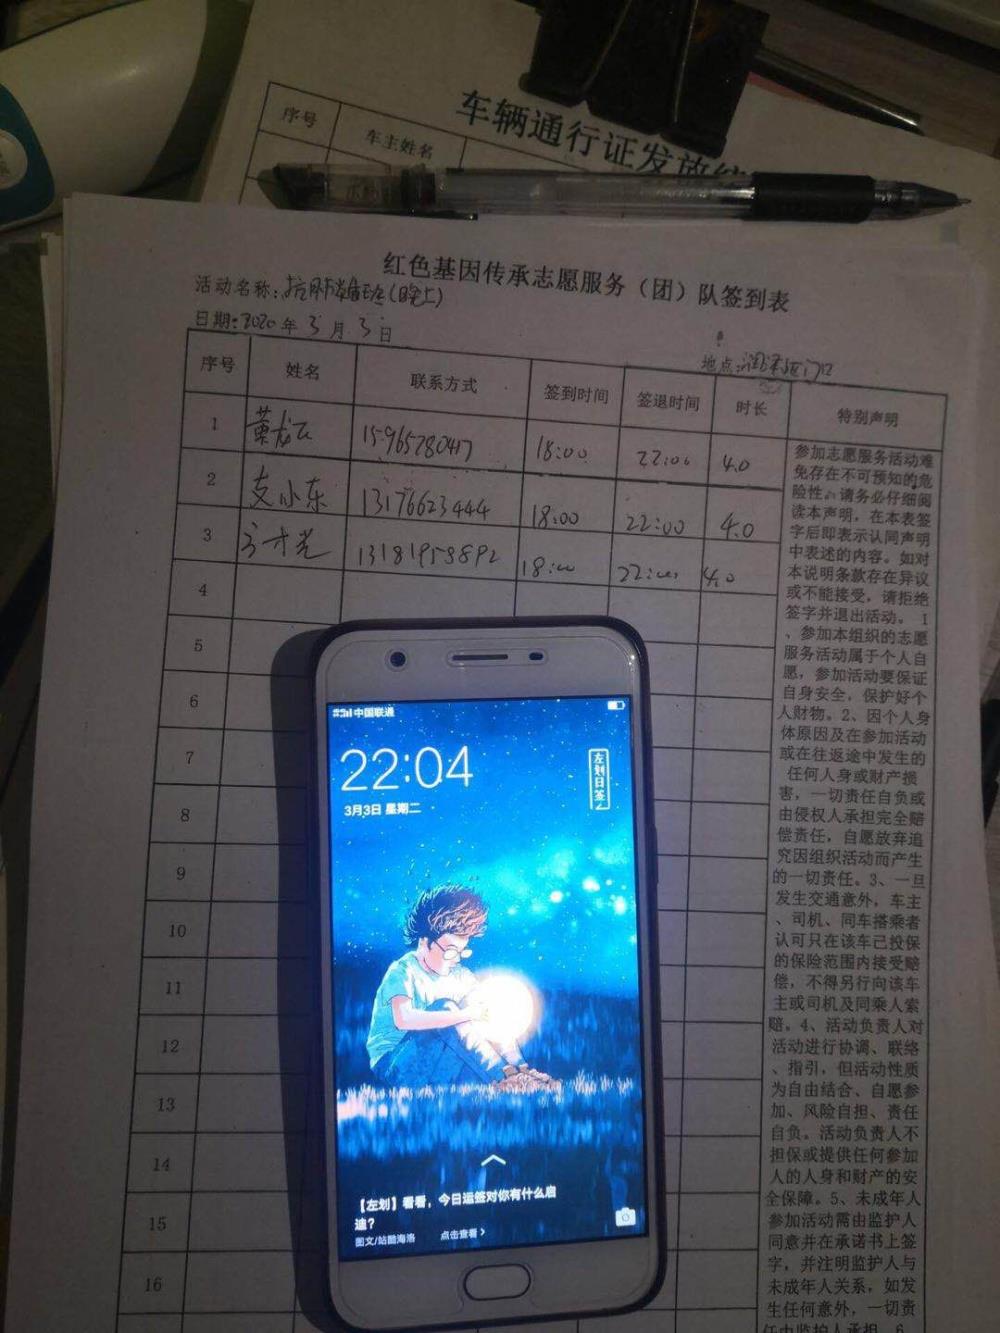 车辆通行证发放
序号 车主姓名
红色基因传承志愿服务（团）队签到表
活动名称：(晚上)
日期：2020年3月3日
地点：门口
序号 姓名 联系方式 签到时间 签退时间 时长 特别声明
1 15965780417 18:00 22:00 4.0
2 支小东 13176623444 18:00 22:00 4.0
3 13181958892 18:00 22:00 4.0
4
5
6
7
8
9
10
11
12
13
14
15
16
参加志愿服务活动难
免存在不可预知的危
险性。请务必仔细阅
读本声明，在本表签
字后即表示认同声明
中表述的内容。如对
本说明条款存在异议
或不能接受，请拒绝
签字并退出活动。 1
、参加本组织的志愿
服务活动属于个人自
愿，参加活动要保证
自身安全，保护好个
人财物。2、因个人身
体原因及在参加活动
或在往返途中发生的
任何人身或财产损
害，一切责任自负或
由侵权人承担完全赔
偿责任，自愿放弃追
究因组织活动而产生
的一切责任。3、一旦
发生交通意外，车主
、司机、同车搭乘者
认可只在该车已投保
的保险范围内接受赔
偿，不得另行向该车
主或司机及同乘人索
赔。4、活动负责人对
活动进行协调、联络
、指引，但活动性质
为自由结合、自愿参
加、风险自担、责任
自负。活动负责人不
担保或提供任何参加
人的人身和财产的安
全保障。5、未成年人
参加活动需由监护人
同意并在承诺书上签
字，并注明监护人与
未成年人关系，如发
生任何意外，一切责
任由监护人承担。6
中国联通
22:04
3月3日 星期二
左划日签
【左划】看看，今日运签对你有什么启
迪？
图文/站酷海洛 点击查看>